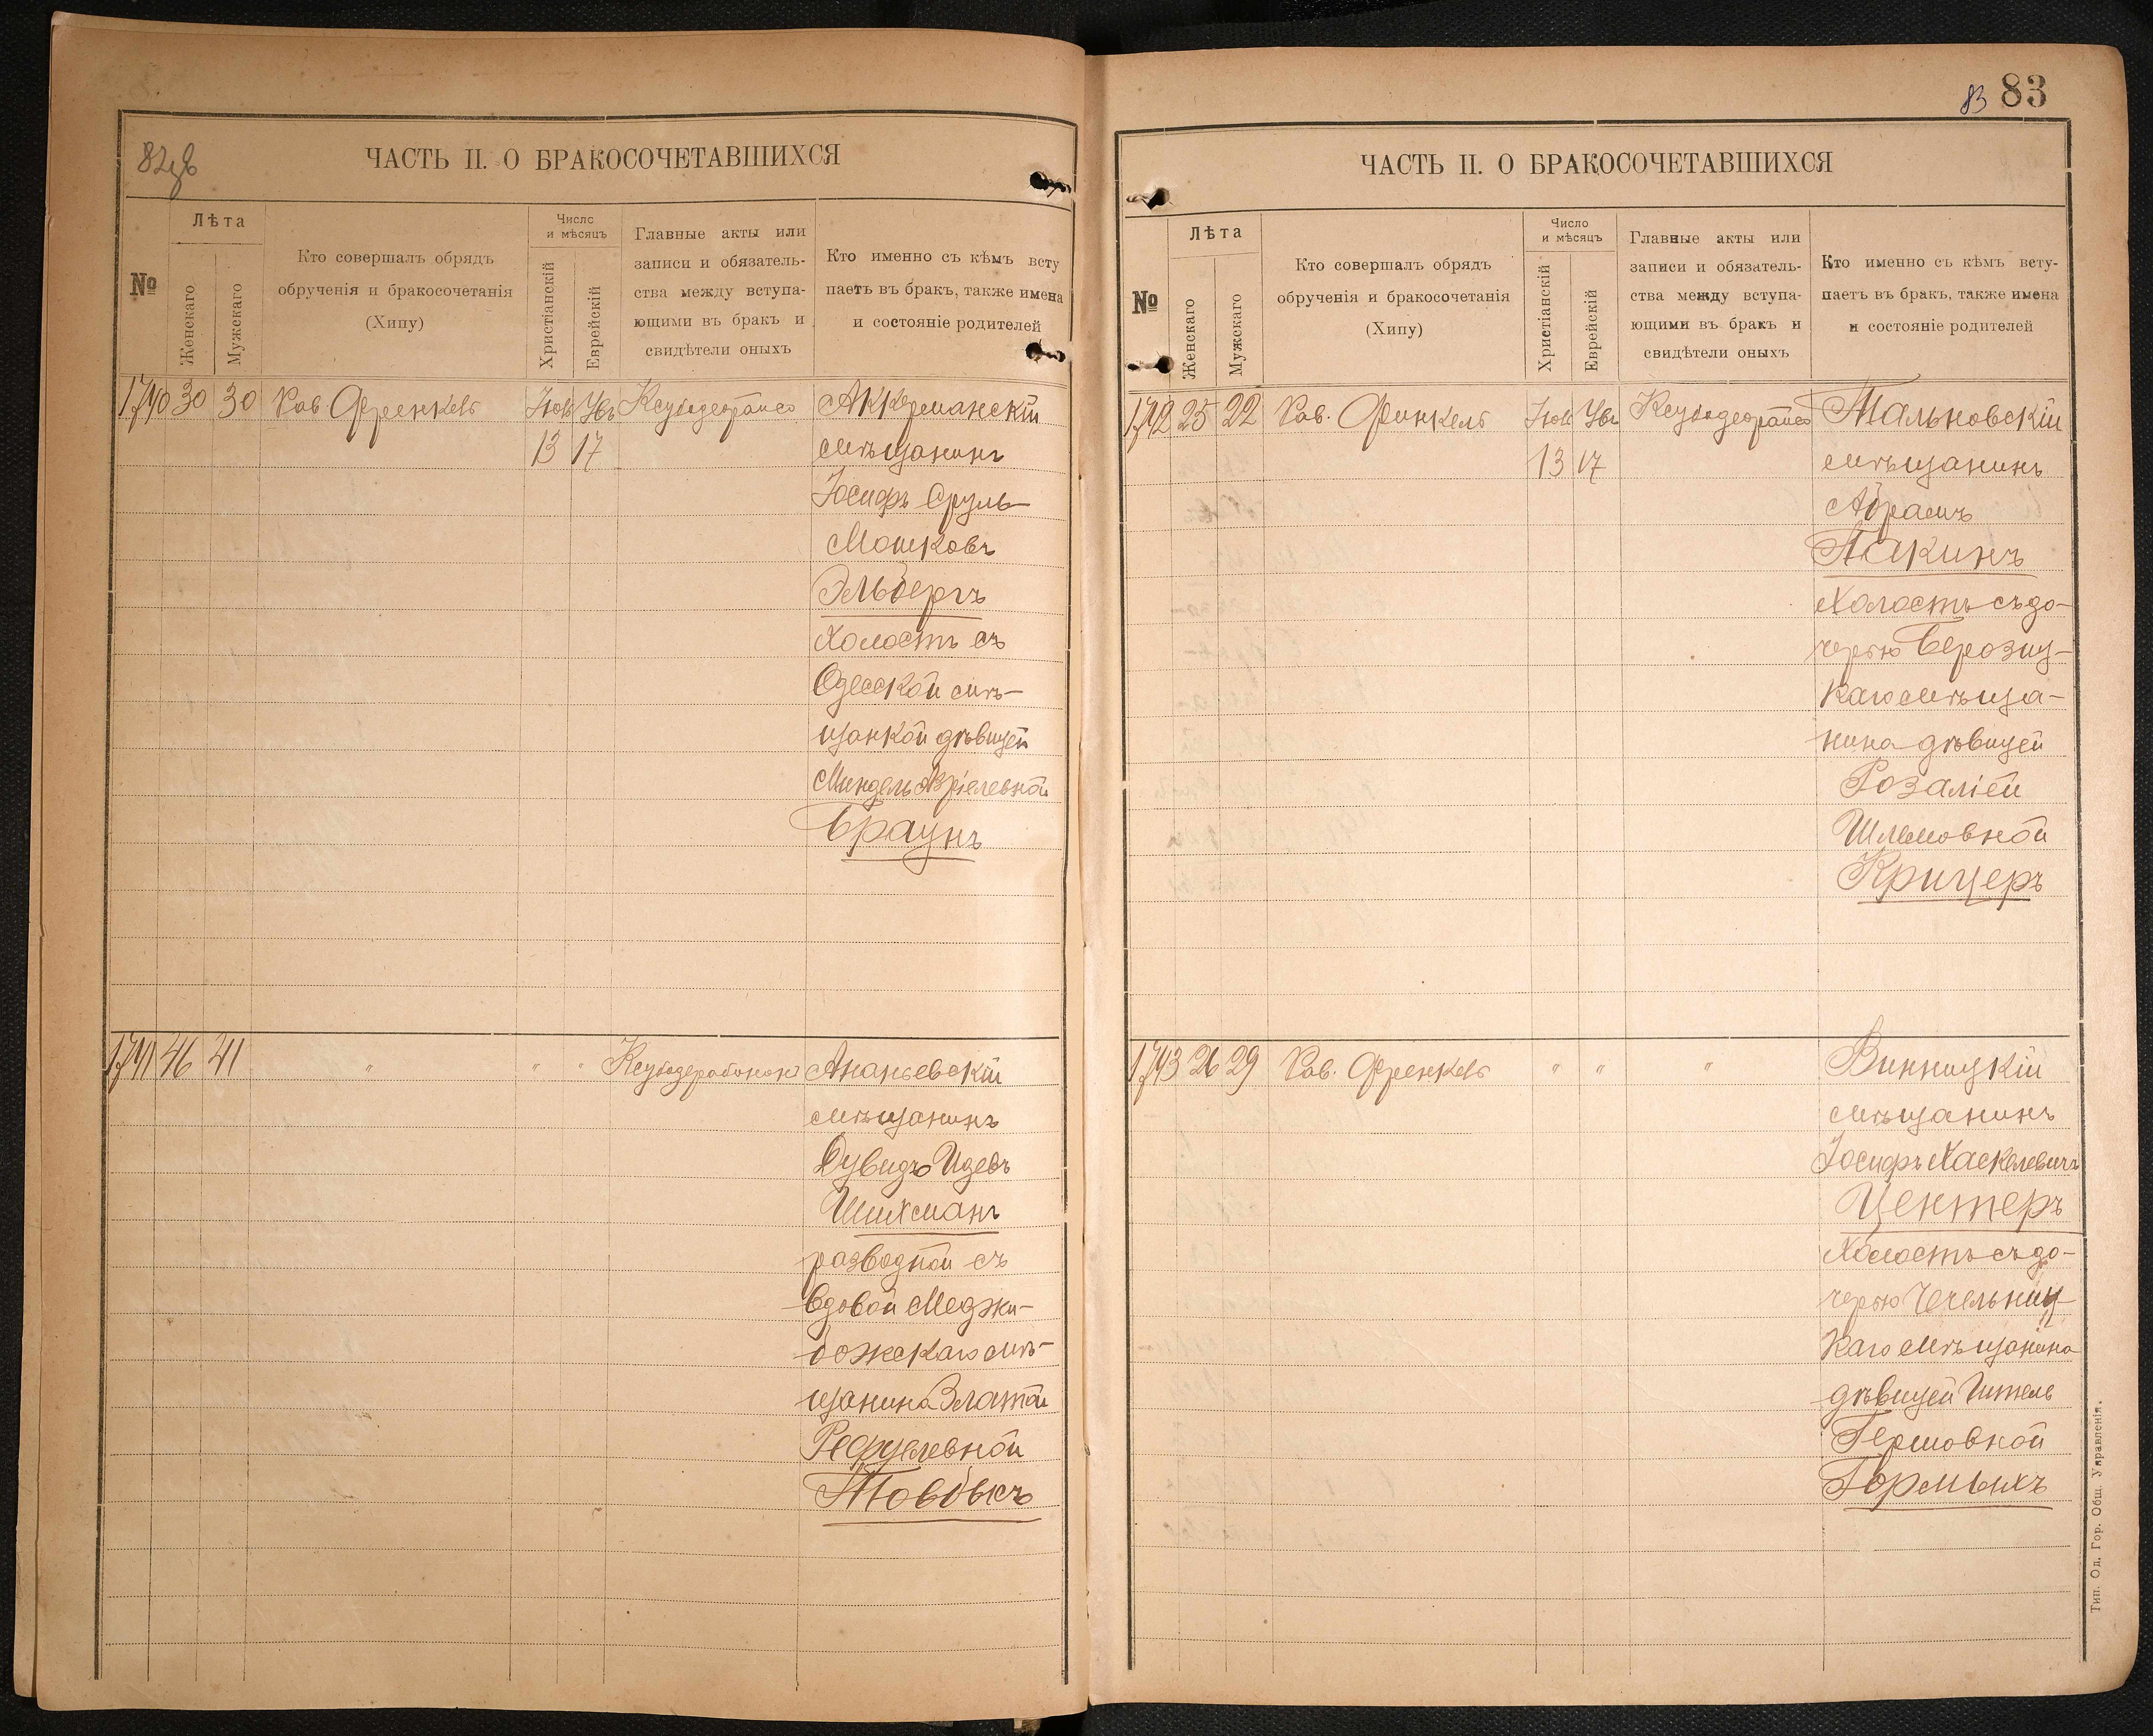 82об
ЧАСТЬ II. О БРАКОСОЧЕТАВШИХСЯ
№
Лѣта
Женскаго
Мужскаго
Кто совершалъ обрядъ
обрученія и бракосочетанія
(Хипу)
Число
и мѣсяцъ
Христіанскій
Еврейскій
Главные акты или
записи и обязатель-
ства между вступа-
ющими въ бракъ и
свидѣтели оныхъ
Кто именно съ кѣмъ всту
паетъ въ бракъ, также имена
и состояніе родителей
1740 30 30 Рав Френкель Аккерманскій
13 17 мѣщанинъ
Іосифъ Сруль
Мошковъ
Эльбергъ
холостъ съ
Одесской мѣ-
щанкой дѣвицей
Миндель Азріелевной
Браунъ
1741 46 41 " " " Ананьевскій
мѣщанинъ
Дувидъ Идевъ
Шихманъ
разводной съ
вдовой Меджи-
божскаго мѣ-
щанина Златой
Рефулевной
Товбисъ
83 83
ЧАСТЬ II. О БРАКОСОЧЕТАВШИХСЯ
№
Лѣта
Женскаго
Мужскаго
Кто совершалъ обрядъ
обрученія и бракосочетанія
(Хипу)
Число
и мѣсяцъ
Христіанскій
Еврейскій
Главные акты или
записи и обязатель-
ства между вступа-
ющими въ бракъ и
свидѣтели оныхъ
Кто именно съ кѣмъ всту-
паетъ въ бракъ, также имена
и состояніе родителей
1742 25 22 Рав. Финкель Тальновскій
13 17 мѣщанинъ
Абрамъ
холостъ съ до-
черью
каго мѣща-
нина дѣвицей
Розаліей
Шлемовной
Крицеръ
1743 26 29 Рав. Френкель " " " Винницкій
мѣщанинъ
Іосифъ Хаскелевичъ
Центеръ
холостъ съ до-
черью Чечельниц-
каго мѣщанина
дѣвицей Итель
Гершовной
Тип. Од. Гор. Общ. Управленія.